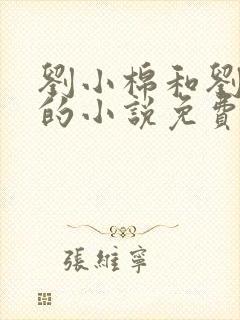 劉小棉和劉
的小說免費
張維寧